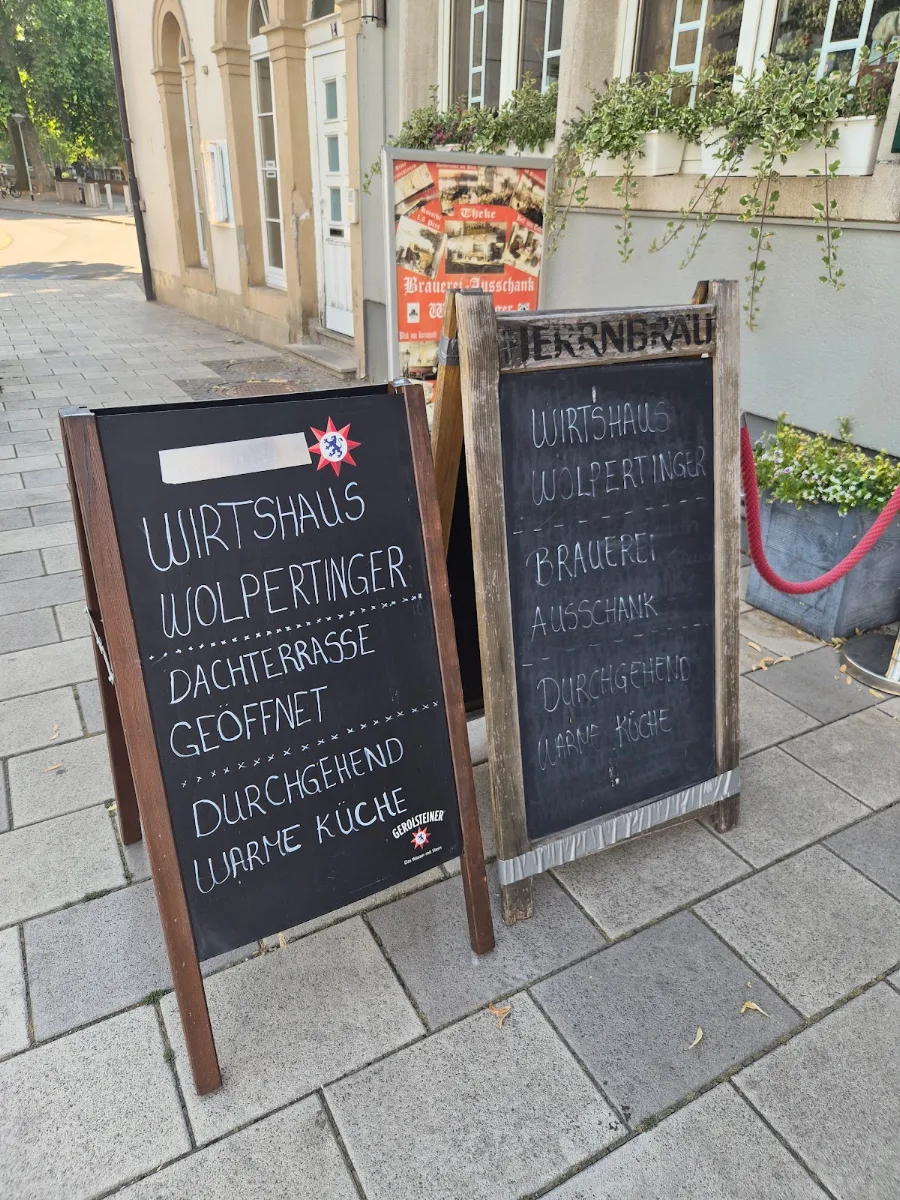 WIRTSHAUS
WOLPERTINGER
DACHTERRASSE
GEÖFFNET
DURCHGEHEND
WARME KÜCHE
GEROLSTEINER
Das Wasser mit Stern
HERRNBRÄU
WIRTSHAUS
WOLPERTINGER
BRAUEREI
AUSSCHANK
DURCHGEHEND
WARME KÜCHE
Theke
Brauerei-Ausschank
14